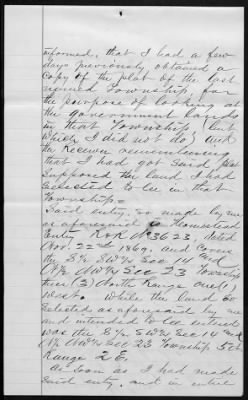 informed, that I had a few
days previously obtained a
copy of the plat of the last
named Township, for
the purpose of looking at
the government lands
in that Township, (but
which I did not do) and
the Receiver remembering
that I had got said plat
supposed the land I had
selected to be in that
Township =
Said entry, so made by me
as aforesaid is Homestead
Entry No 3623, dated
Nov. 22nd 1869, and covers
the S½ SW¼ Sec 14 and
N½ NW¼ Sec 23 Township
three (3) North Range one (1)
West. While the land so
selected as aforesaid by me
and intended to be entered
was the S½ SW¼ Sec 14 and
N½ NW¼ Sec 23 Township 5
Range 2 E.
As soon as I had made
said entry, and in